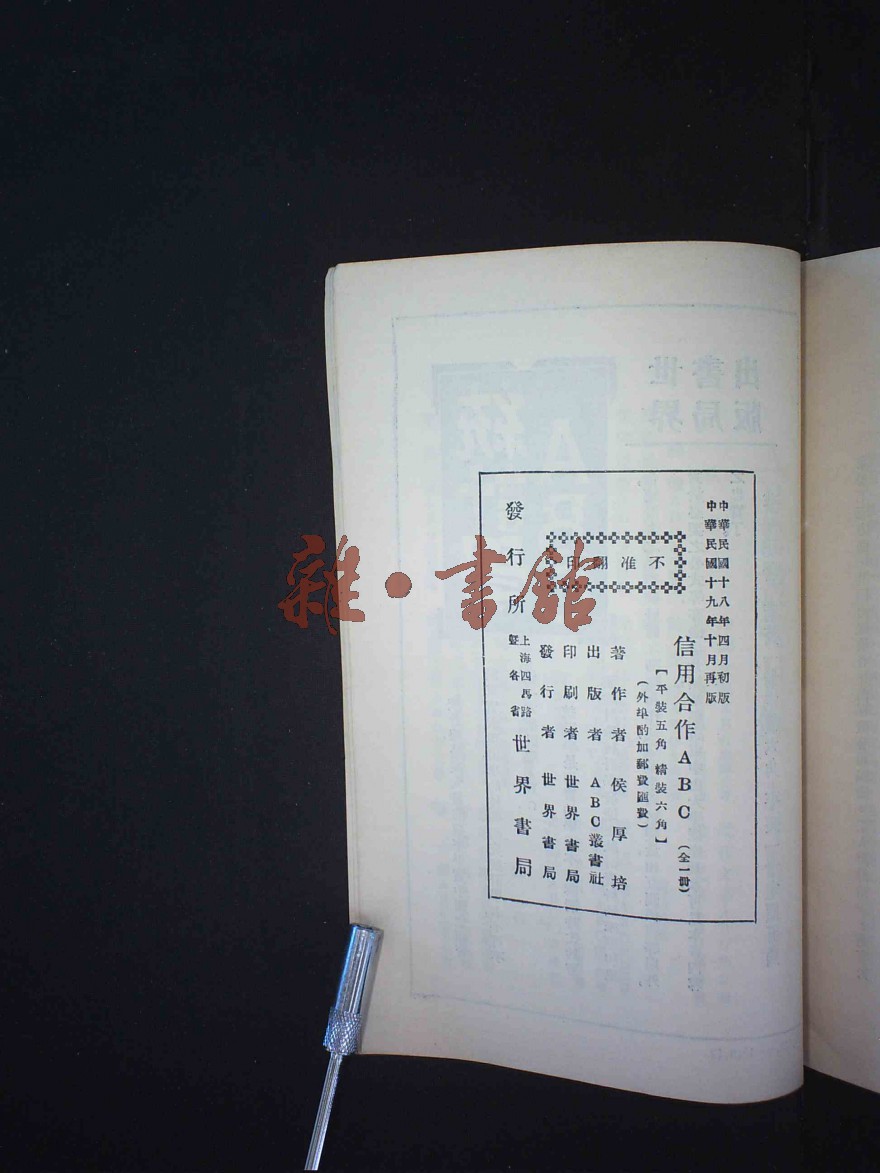 中華民國十八年四月初版
中華民國十九年十月再版
信用合作ABC(全一冊)
【平裝五角 精裝六角】
(外埠酌加郵費匯費)
不准翻印
著作者 侯厚培
出版者 ABC叢書社
印刷者 世界書局
發行者 世界書局
發行所 上海四馬路暨各省 世界書局
雜·書館
世界書局出版